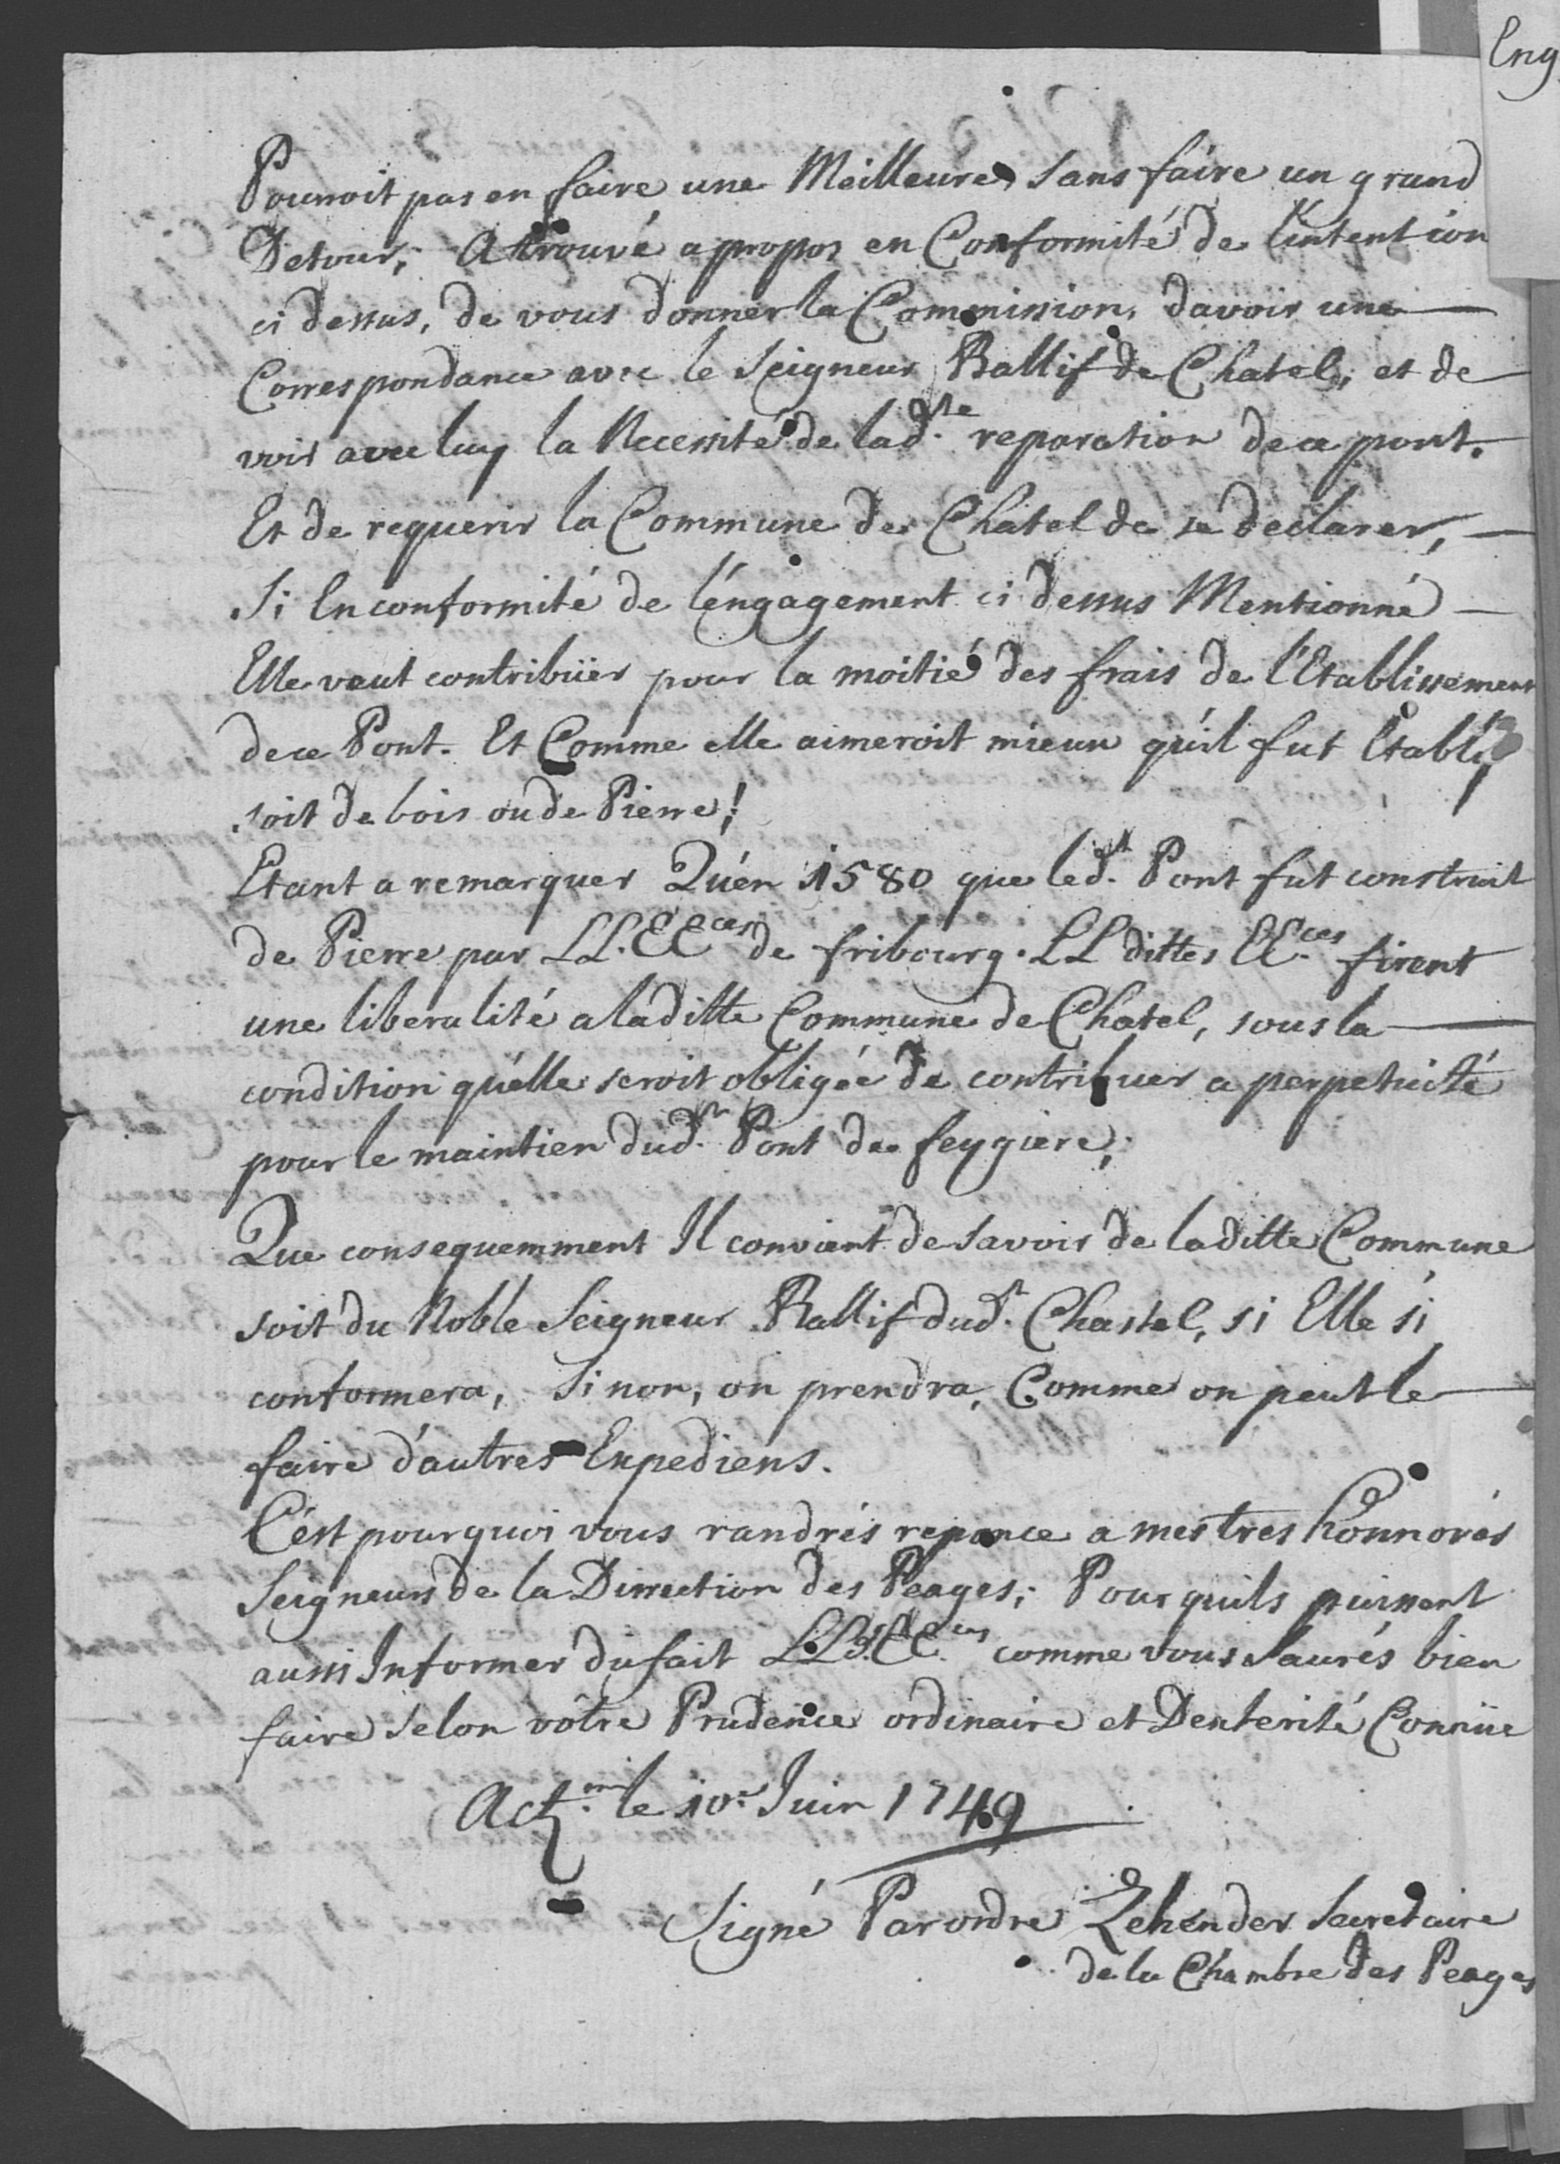 Eng
Pouroit pas en faire une Meilleure sans faire un grand
Detour; A trouvé a propos en Conformité de l'intention
ci dessus, de vous donner la Commission, davoir une
Correspondance avec le Seigneur Ballif de Chatel; et de
voir avec luy la Necessité de lad.te reparation de ce pont.
Et de requerir la Commune de Chatel de se declarer,
Si En conformité de l'éngagement ci dessus Mentionné
Elle veut contribüer pour la moitié des frais de l'Etablissement
de ce Pont. Et Comme elle aimeroit mieux qu'il fut Etabli,
soit de bois ou de Pierre;
Etant a remarquer Qu'en 1580 que led.t Pont fut construit
de Pierre par LL.EE.ces de fribourg. LL dittes EE.ces firent
une liberalité a laditte Commune de Chatel, sous la
condition qu'elle seroit obligée de contribuer a perpetuité
pour le maintien dud.t Pont de feygiere;
Que consequemment Il convient de savoir de laditte Commune
soit du Noble Seigneur Ballif dud.t Chastel, si Elle s'i
conformera, Si non, on prendra, Comme on peut le
faire d'autres Expediens.
C'ést pourquoi vous randrés reponce a mes tres honnorés
Seigneurs de la Direction des Peages; Pour quils puissent
aussi Informer du fait LL.EE.ces comme vous saurés bien
faire selon vôtre Prudence ordinaire et Dexterité Connüe
Act.m le 10.e Juin 1749
Signé Par ordre Zehender Secretaire
de la Chambre des Peages